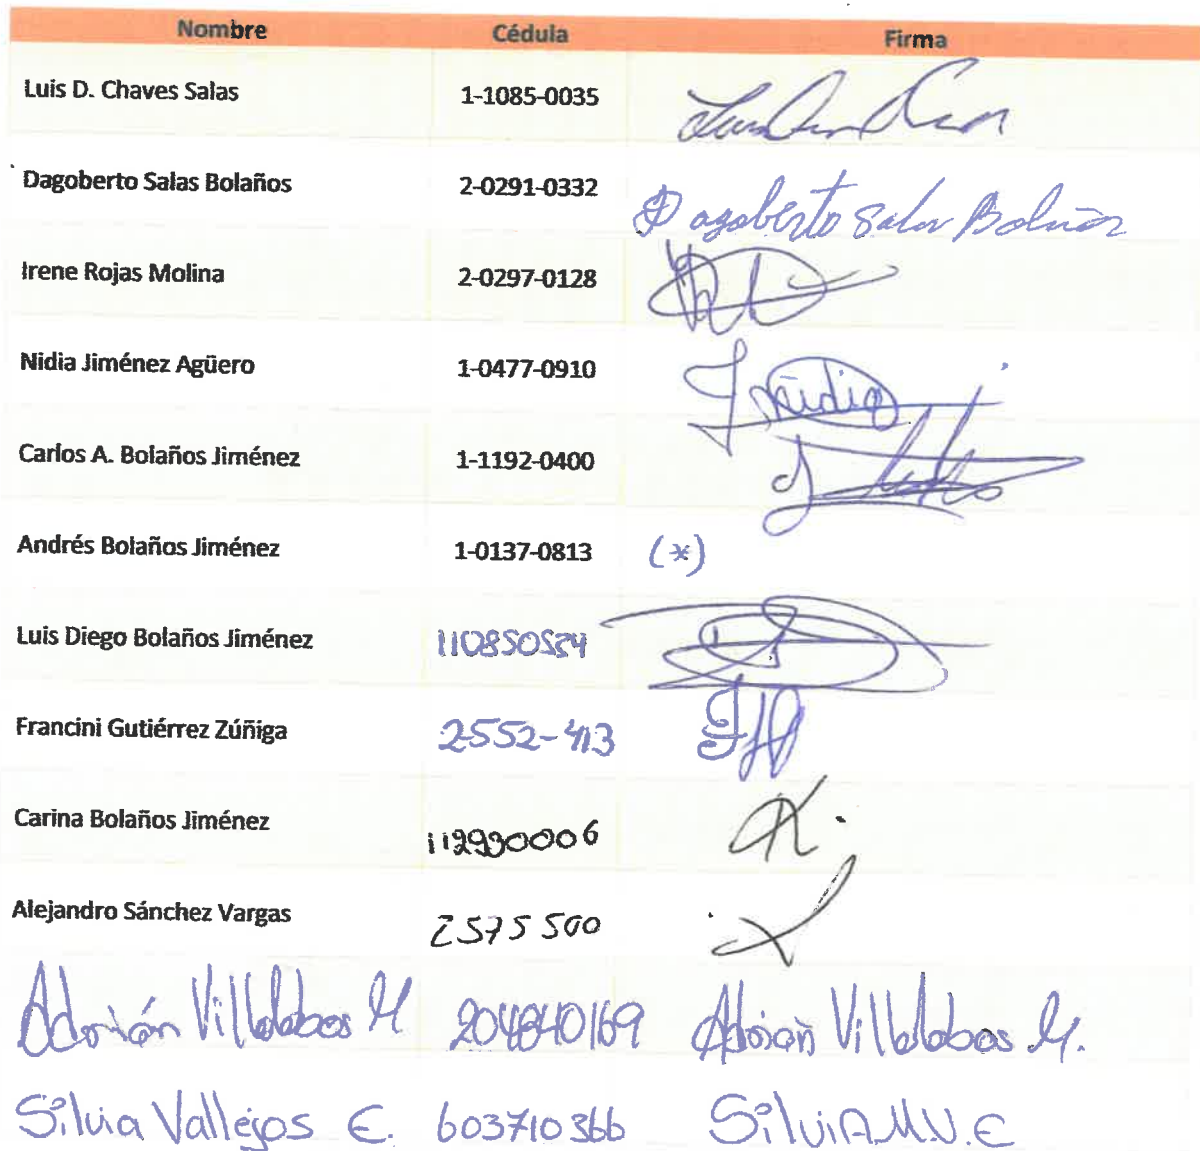 Nombre Cédula Firma
Luis D. Chaves Salas 1-1085-0035
Dagoberto Salas Bolaños 2-0291-0332 Dagoberto Salas Bolaños
Irene Rojas Molina 2-0297-0128
Nidia Jiménez Agüero 1-0477-0910 Nidia
Carlos A. Bolaños Jiménez 1-1192-0400
Andrés Bolaños Jiménez 1-0137-0813 (*)
Luis Diego Bolaños Jiménez 110850524
Francini Gutiérrez Zúñiga 2552-413
Carina Bolaños Jiménez 112930006
Alejandro Sánchez Vargas 2575500
Adorián Villalobos M 204840169 Adrián Villalobos M.
Silvia Vallejos E. 603710366 SilviA.M.V.E